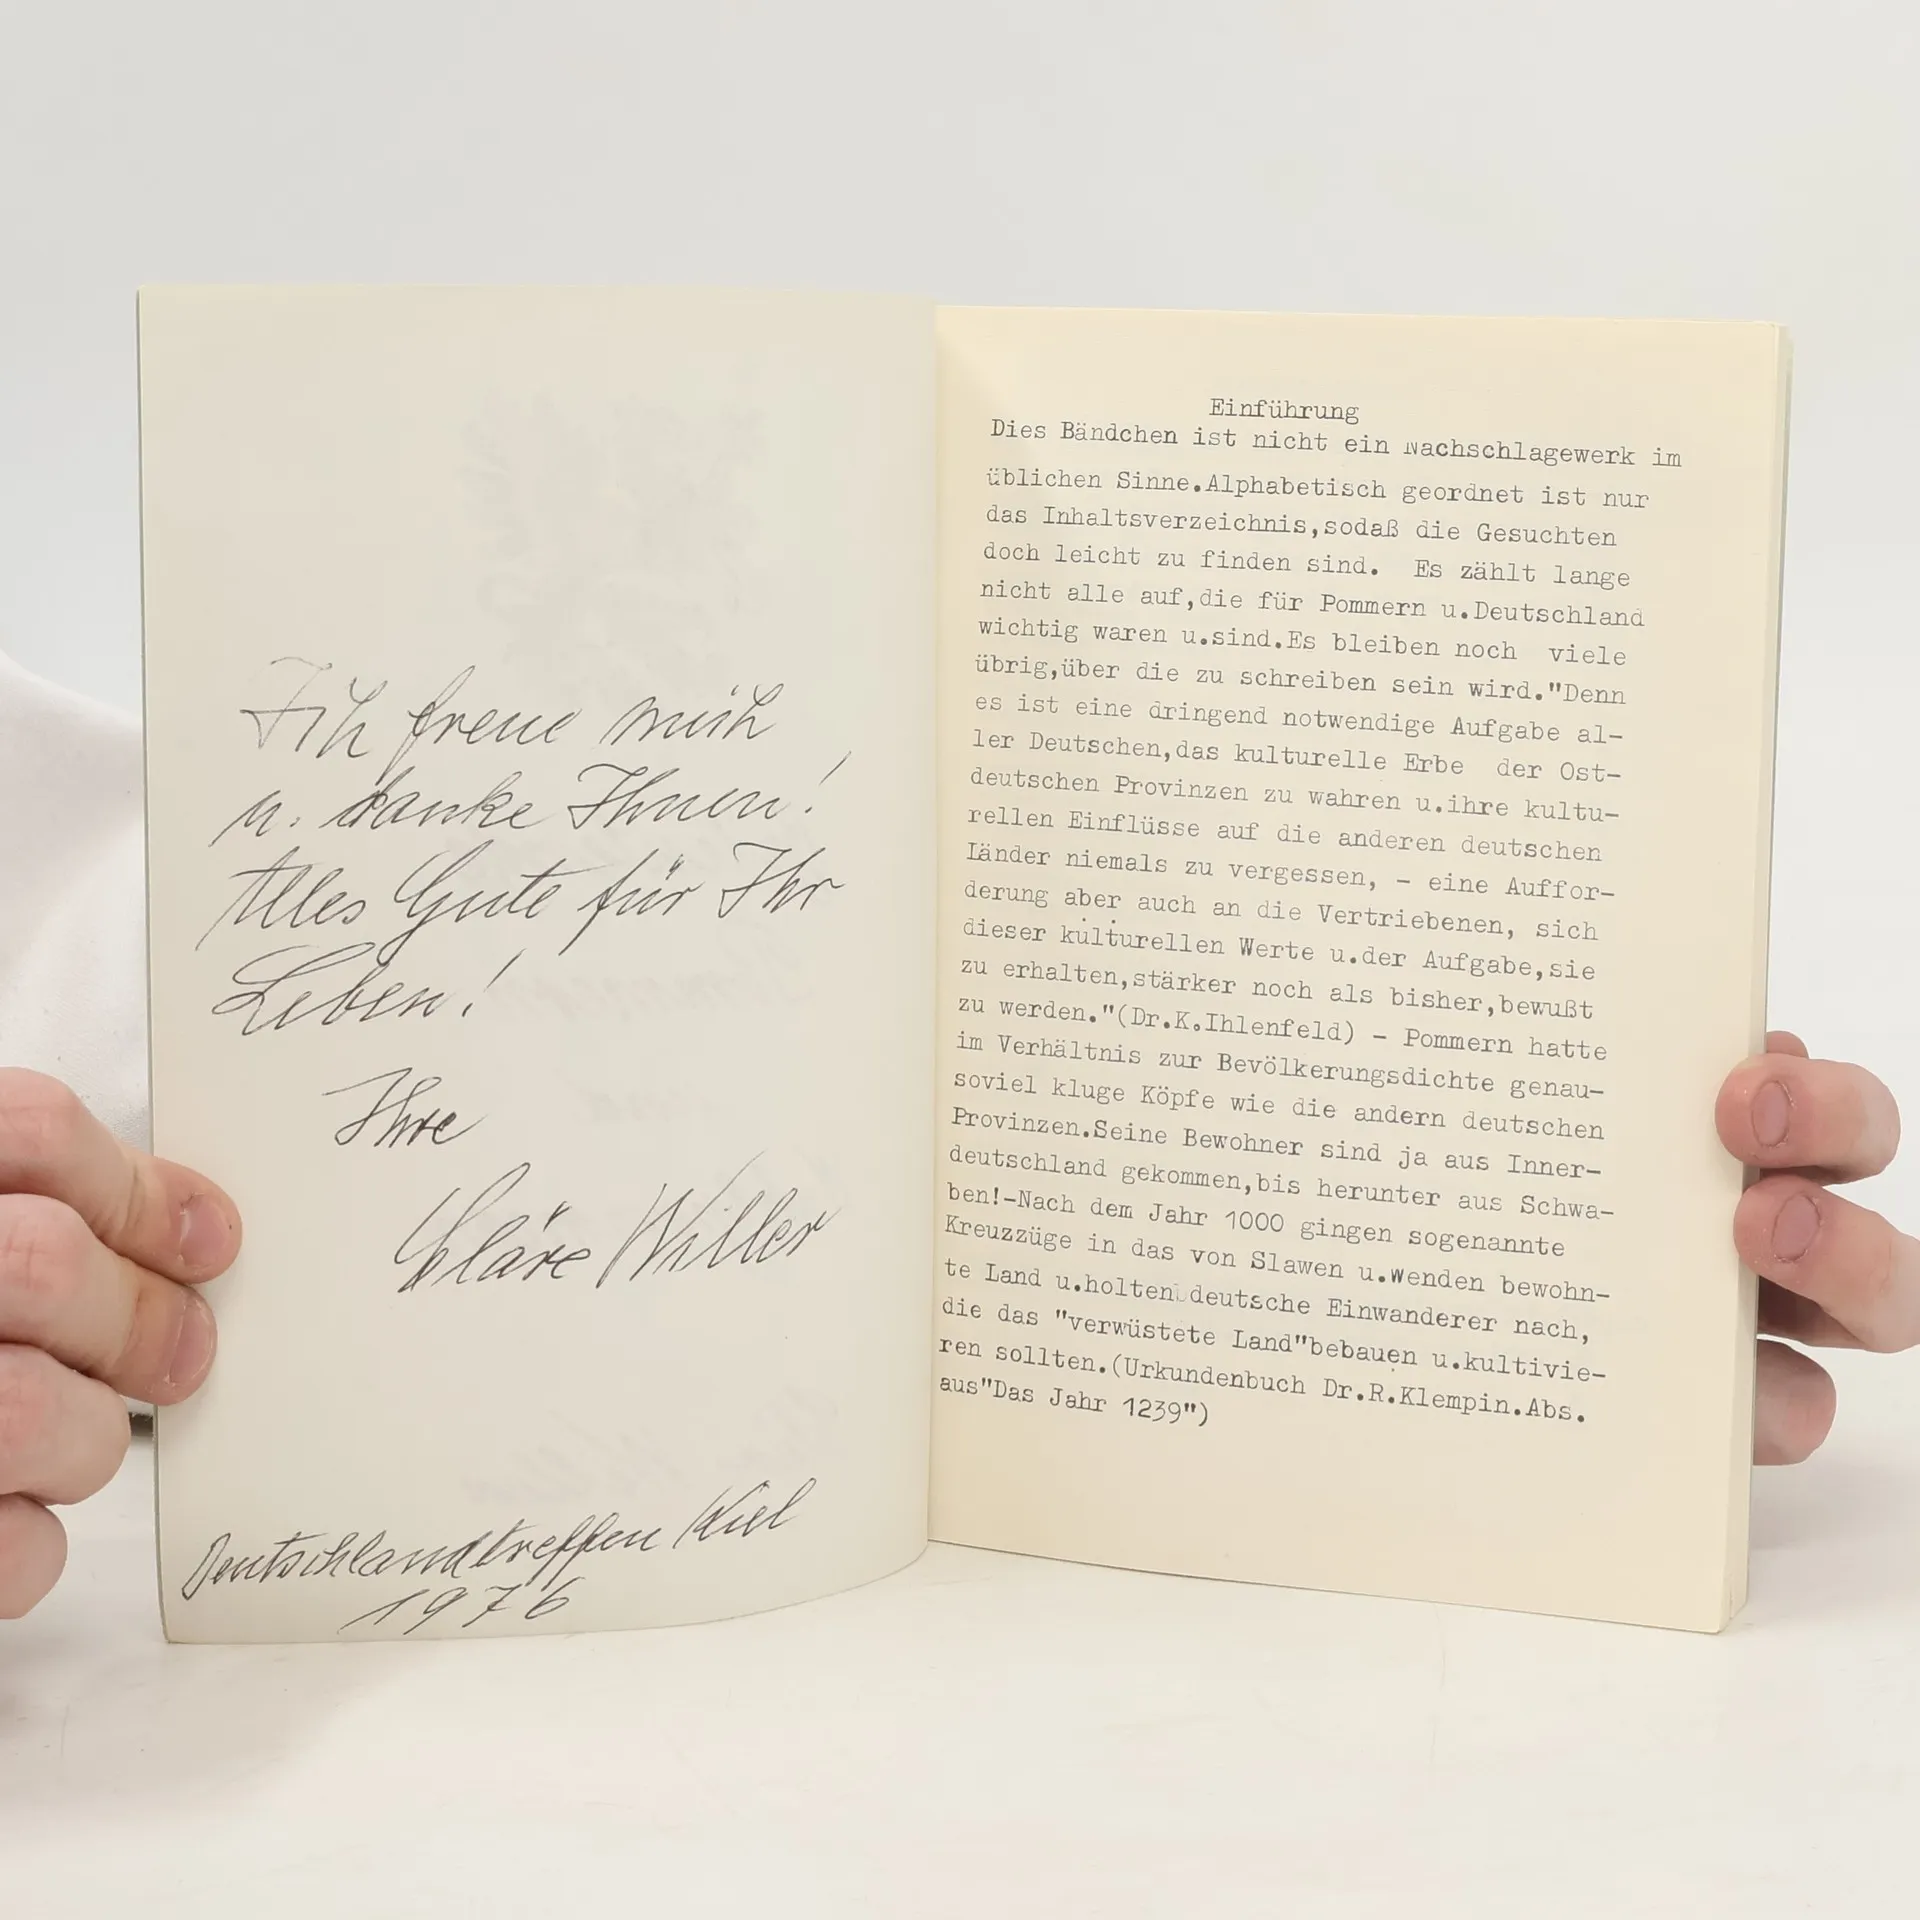 Ich freue mich
u. danke Ihnen!
Alles Gute für Ihr
Leben!
Ihre
Cläre Willer
Deutschlandtreffen Kiel
1976
Einführung
Dies Bändchen ist nicht ein Nachschlagewerk im
üblichen Sinne.Alphabetisch geordnet ist nur
das Inhaltsverzeichnis,sodaß die Gesuchten
doch leicht zu finden sind. Es zählt lange
nicht alle auf,die für Pommern u.Deutschland
wichtig waren u.sind.Es bleiben noch viele
übrig,über die zu schreiben sein wird."Denn
es ist eine dringend notwendige Aufgabe al-
ler Deutschen,das kulturelle Erbe der Ost-
deutschen Provinzen zu wahren u.ihre kultu-
rellen Einflüsse auf die anderen deutschen
Länder niemals zu vergessen, - eine Auffor-
derung aber auch an die Vertriebenen, sich
dieser kulturellen Werte u.der Aufgabe,sie
zu erhalten,stärker noch als bisher,bewußt
zu werden."(Dr.K.Ihlenfeld) - Pommern hatte
im Verhältnis zur Bevölkerungsdichte genau-
soviel kluge Köpfe wie die andern deutschen
Provinzen.Seine Bewohner sind ja aus Inner-
deutschland gekommen,bis herunter aus Schwa-
ben!-Nach dem Jahr 1000 gingen sogenannte
Kreuzzüge in das von Slawen u.Wenden bewohn-
te Land u.holten deutsche Einwanderer nach,
die das "verwüstete Land"bebauen u.kultivie-
ren sollten.(Urkundenbuch Dr.R.Klempin.Abs.
aus"Das Jahr 1239")